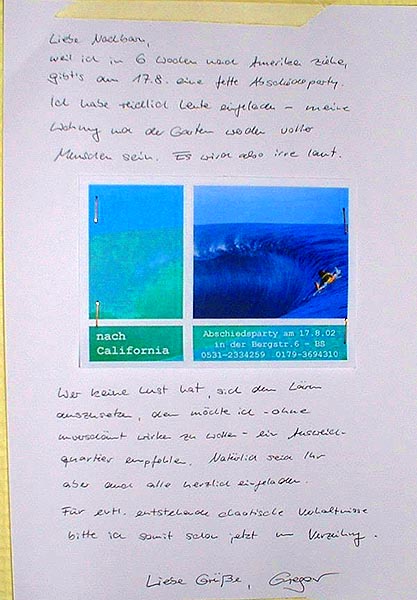 Liebe Nachbarn,
weil ich in 6 Wochen nach Amerika ziehe,
gibt's am 17.8. eine fette Abschiedsparty.
Ich habe reichlich Leute eingeladen – meine
Wohnung und der Garten werden voller
Menschen sein. Es wird also irre laut.
nach
California
Abschiedsparty am 17.8.02
in der Bergstr.6 - BS
0531-2334259 0179-3694310
Wer keine Lust hat, sich dem Lärm
auszusetzen, dem möchte ich – ohne
unverschämt wirken zu wollen – ein Ausweich-
quartier empfehlen. Natürlich seid Ihr
aber auch alle herzlich eingeladen.
Für evtl. entstehende chaotische Verhältnisse
bitte ich somit schon jetzt um Verzeihung.
Liebe Grüße, Gregor